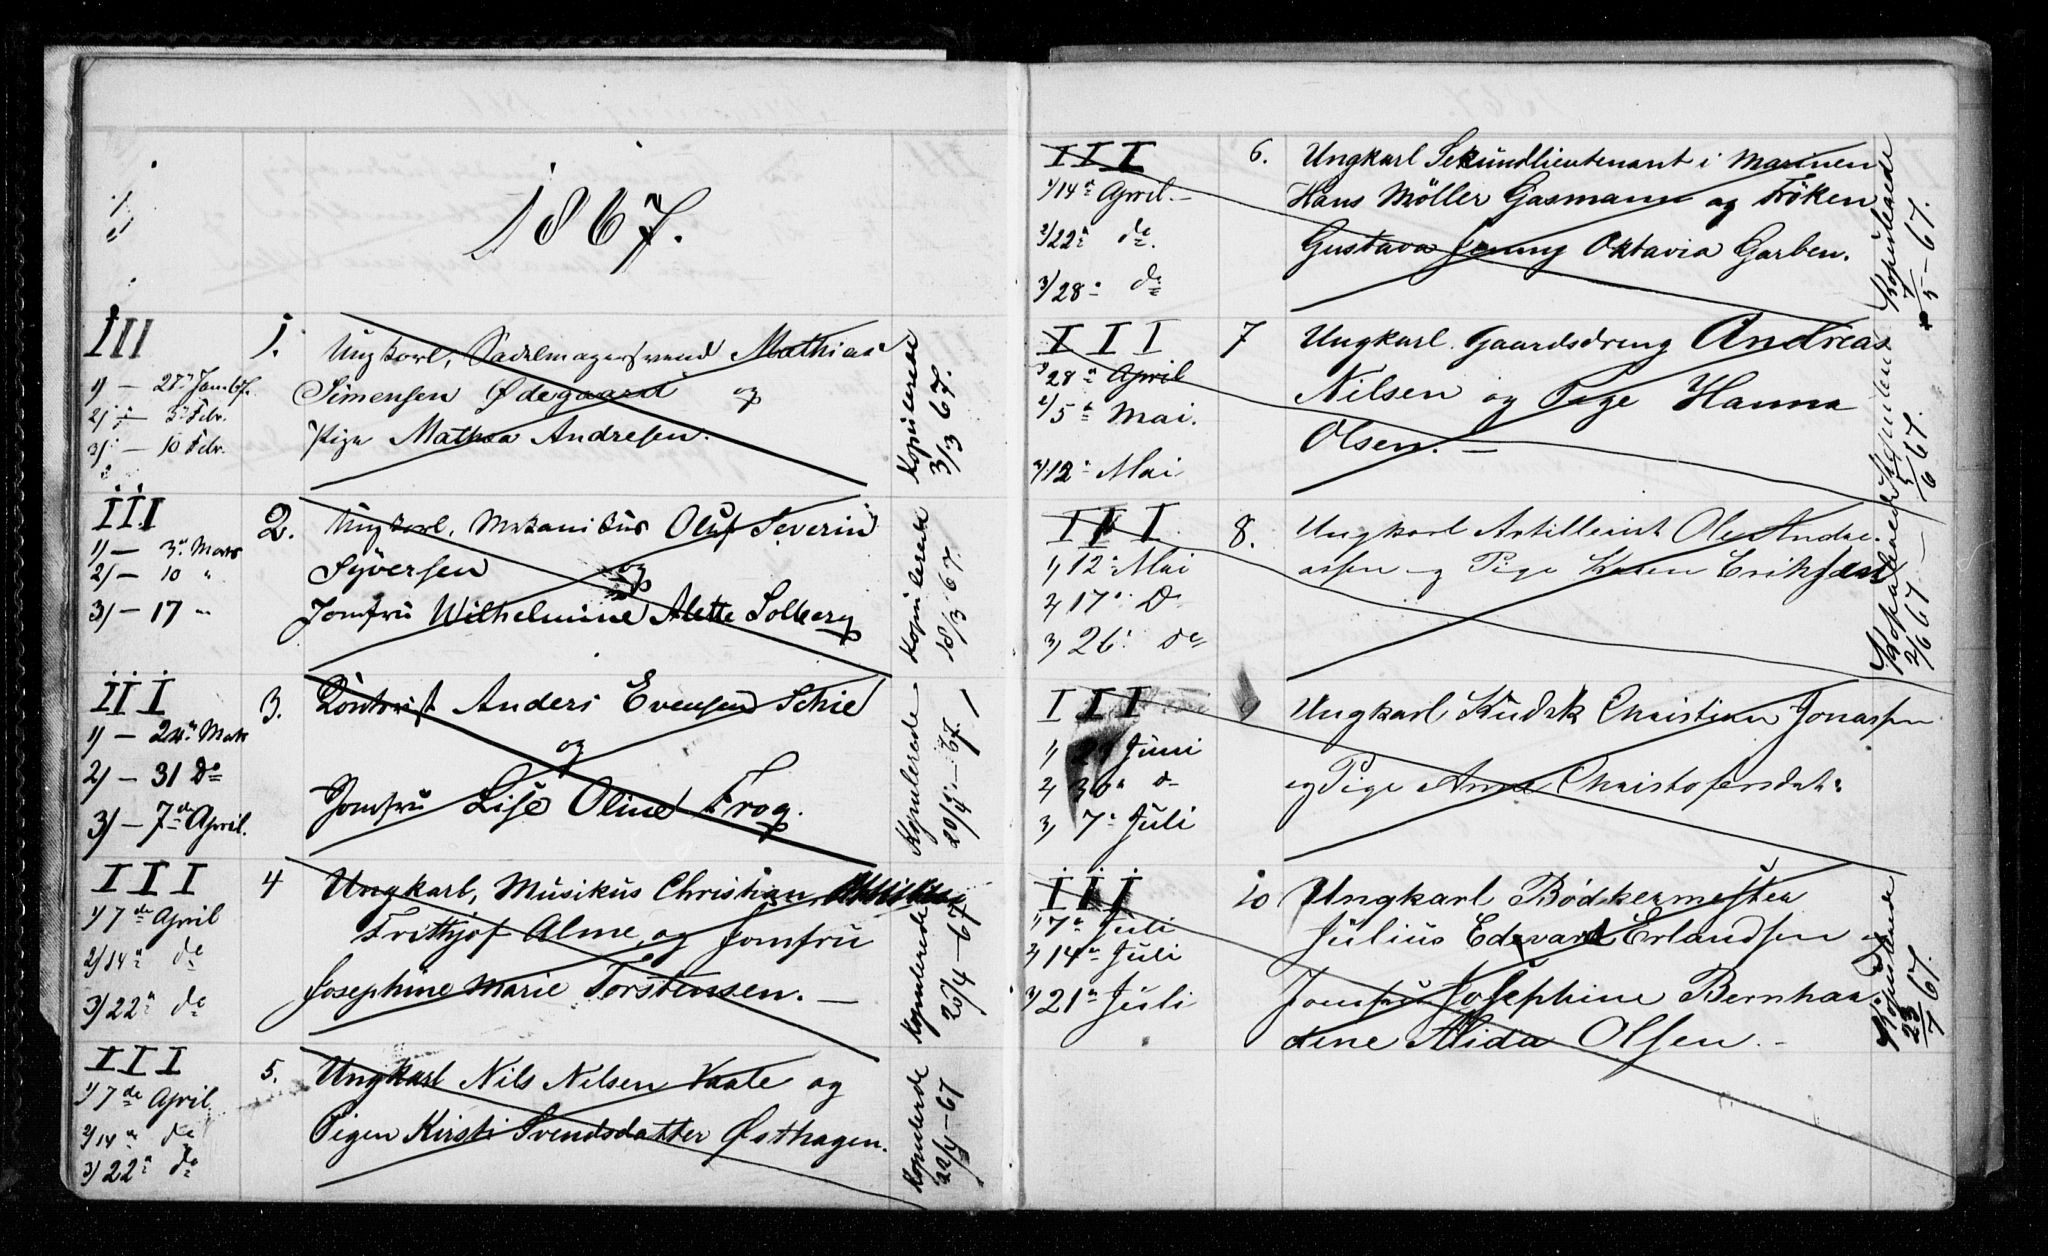 1867.
III
1) — 27de Januar.
2) — 3de Febr.
3) — 10 Febr.
1.
Ungkarl, Sadelmagersvend Mathias
Simensen Ødegaard og
Pige Mathea Andresen.
Kopulerede
3/3 67.
III
1) — 3de Mars
2) — 10 "
3) — 17 "
2.
Ungkarl, Mekanikus Oluf Severin
Syversen og
Jomfru Wilhelmine Alette Solberg
Kopulerede
18/3 67.
III
1) — 24de Mars
2) — 31 Do
3) — 7de April.
3.
Anders Evensen Schie
og
Jomfru Lise Oline Frog.
Kopulerede
20/4 — 67.
III
1) 7de April
2) 14de do
3) 22de do
4
Ungkarl, Musikus Christian
Frithjof Alme og Jomfru
Josephine Marie Torstensen. —
Kopulerede
20/4 — 67
III
1) 7de April
2) 14de do
3) 22de do
5.
Ungkarl Nils Nilsen Vaale og
Pigen Kirsti Svendsdatter Østhagen.
Kopulerede
22/4 — 67
III
1) 14de April. —
2) 22de do.
3) 28de do
6.
Ungkarl Sekundlieutenant i Marinen
Hans Möller Gasmann og Frøken
Gustava Jenny Oktavia Garben.
Kopulerede
7/5 — 67.
III
1) 28de April
2) 5de Mai.
3) 12de Mai
7
Ungkarl Gaardsdreng Andreas
Nilsen og Pige Hanna
Olsen. —
Kopulerede
5/6 67.
III
1) 12te Mai
2) 17de Do
3) 26de do
8.
Ungkarl Artillerist Ole Andre-
assen og Pige Karen Eriksdat
Kopulerede
2/6 67 —
III
1) Juni
2) 30de do
3) 7de Juli
Ungkarl Kudsk Christian Jonassen
og Pige Anne Christofersdatr
III
1) 7de Juli
2) 14de Juli
3) 21de Juli
10
Ungkarl Bödkermester
Julius Edevard Erlandsen og
Jomfru Josephine Bernhar
dine Alida Olsen. —
Kopulerede
23/7 67.